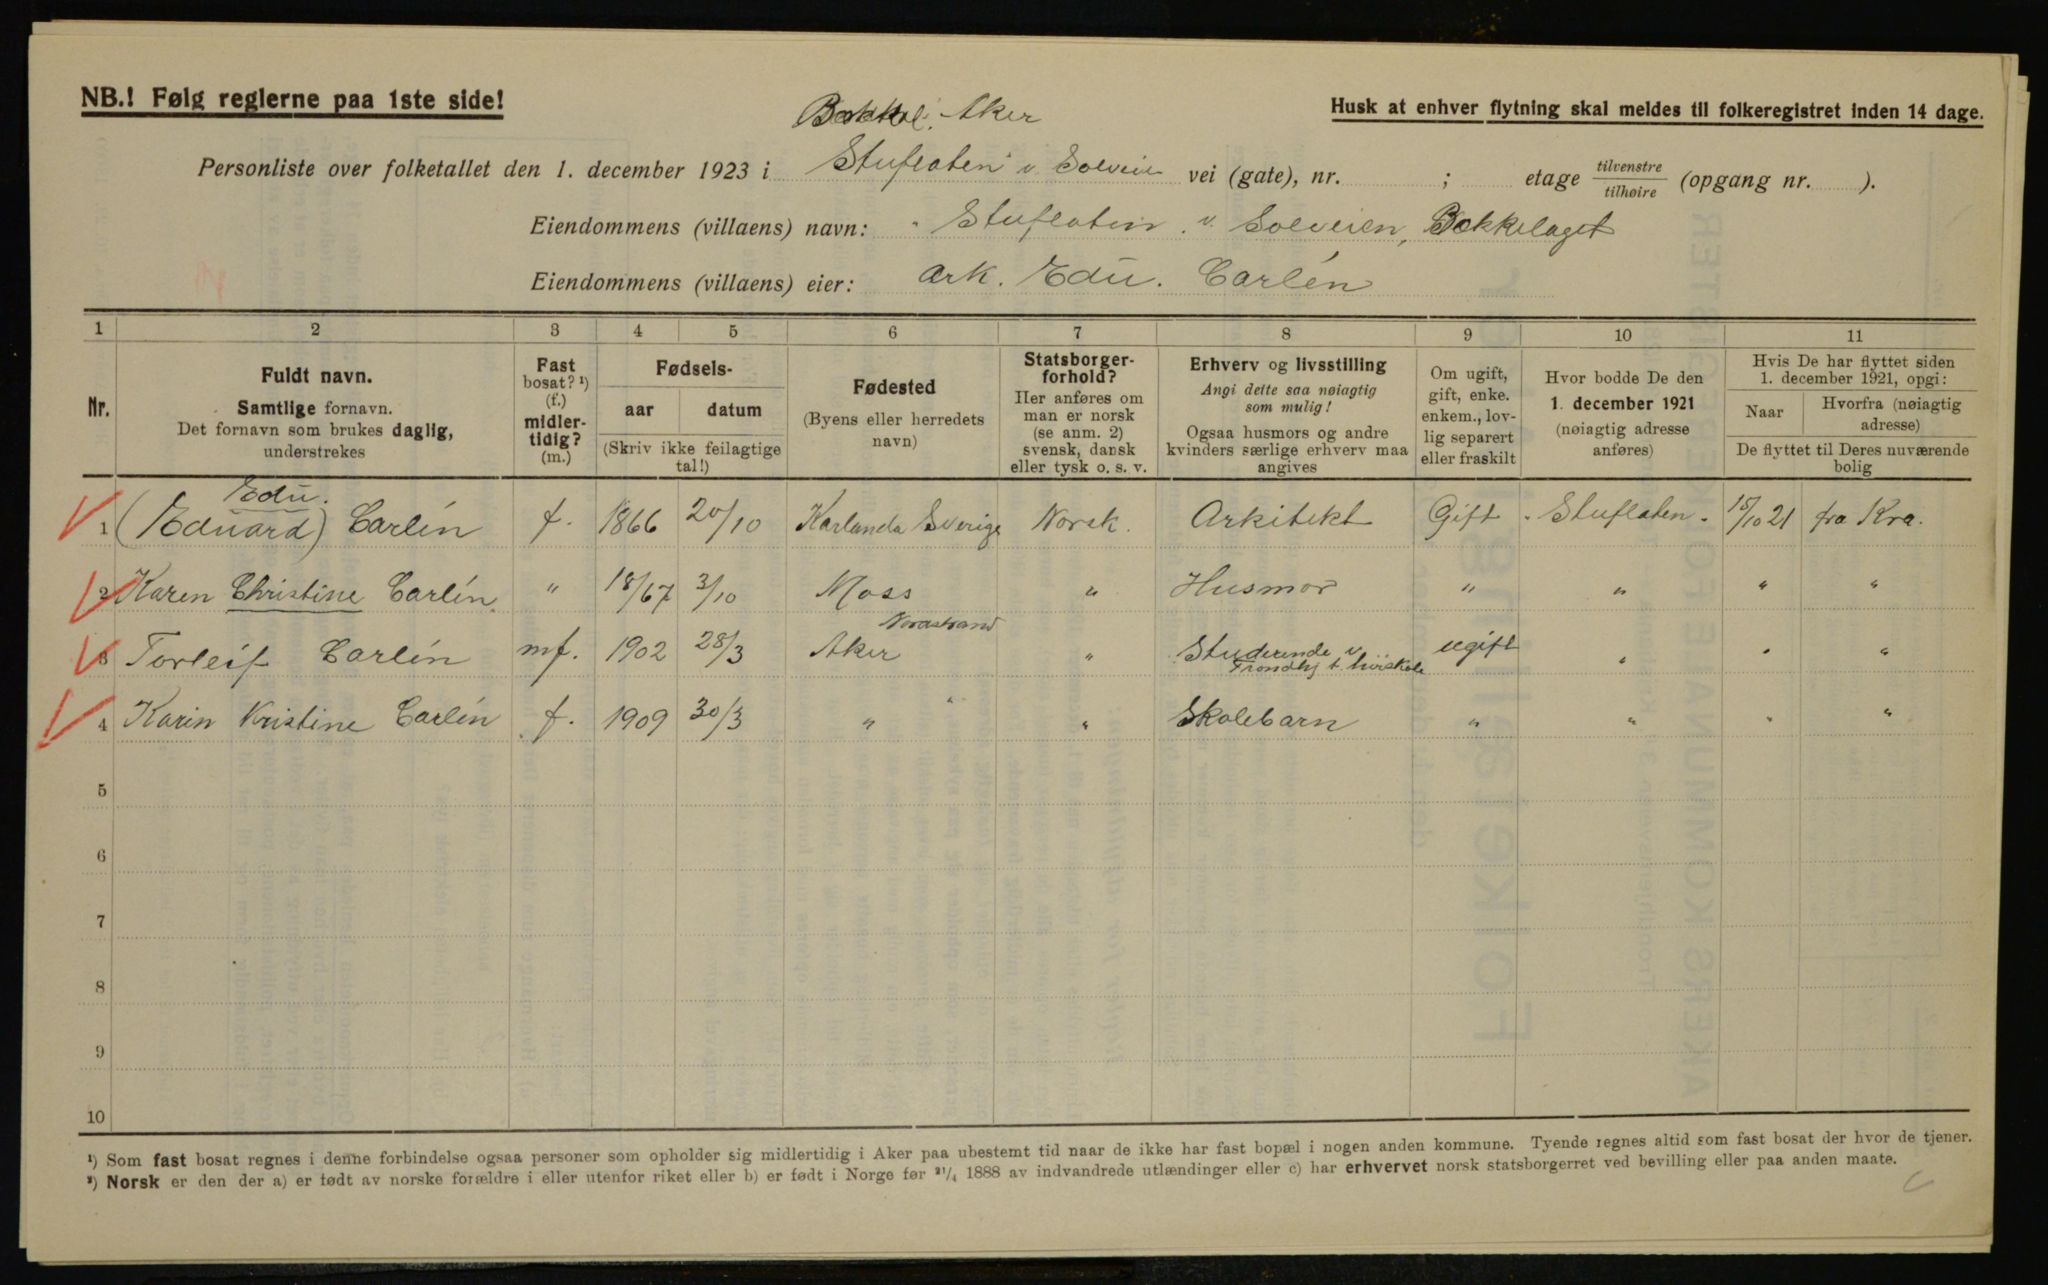 NB.! Følg reglerne paa 1ste side!
Husk at enhver flytning skal meldes til folkeregistret inden 14 dage.
Bækkel. Aker
Personliste over folketallet den 1. december 1923 i Stuflaten v Solveien vei (gate), nr. ; etage tilvenstre tilhøire (opgang nr. ).
Eiendommens (villaens) navn: Stuflaten v. Solveien, Bækkelaget
Eiendommens (villaens) eier: Ark. Edu. Carlén
1 2 3 4 5 6 7 8 9 10 11
Nr.
Fuldt navn.
Samtlige fornavn.
Det fornavn som brukes daglig,
understrekes
Fast
bosat? ¹)
(f.)
midler-
tidig?
(m.)
Fødsels-
aar datum
(Skriv ikke feilagtige
tal!)
Fødested
(Byens eller herredets
navn)
Statsborger-
forhold?
Her anføres om
man er norsk
(se anm. 2)
svensk, dansk
eller tysk o. s. v.
Erhverv og livsstilling
Angi dette saa nøiagtig
som mulig!
Ogsaa husmors og andre
kvinders særlige erhverv maa
angives
Om ugift,
gift, enke.
enkem., lov-
lig separert
eller fraskilt
Hvor bodde De den
1. december 1921
(nøiagtig adresse
anføres)
Hvis De har flyttet siden
1. december 1921, opgi:
Naar
Hvorfra (nøiagtig
adresse)
De flyttet til Deres nuværende
bolig
Edu.
1 (Eduard) Carlén f. 1866 20/10 Karlanda Sverige Norsk. Arkitekt Gift Stuflaten 15/10 21 fra Kra.
2 Karen Christine Carlén " 18/67 3/10 Moss " Husmor " " " "
Nordstrand
3 Torleif Carlén mf. 1902 28/3 Aker " Studerende v ugift " " "
Trondhj t. høiskole
4 Karin Kristine Carlén f. 1909 30/3 " " " Skolebarn " " " "
5
6
7
8
9
10
¹) Som fast bosat regnes i denne forbindelse ogsaa personer som opholder sig midlertidig i Aker paa ubestemt tid naar de ikke har fast bopæl i nogen anden kommune. Tyende regnes altid som fast bosat der hvor de tjener.
²) Norsk er den der a) er født av norske forældre i eller utenfor riket eller b) er født i Norge før 21/4 1888 av indvandrede utlændinger eller c) har erhvervet norsk statsborgerret ved bevilling eller paa anden maate.